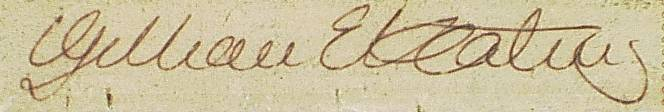 William E Keating